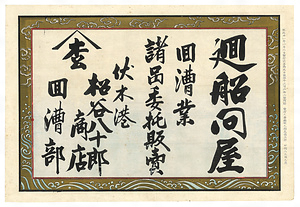 廻船問屋
回漕業
諸品委託販賣
伏木港
松谷八十郎
商店
回漕部